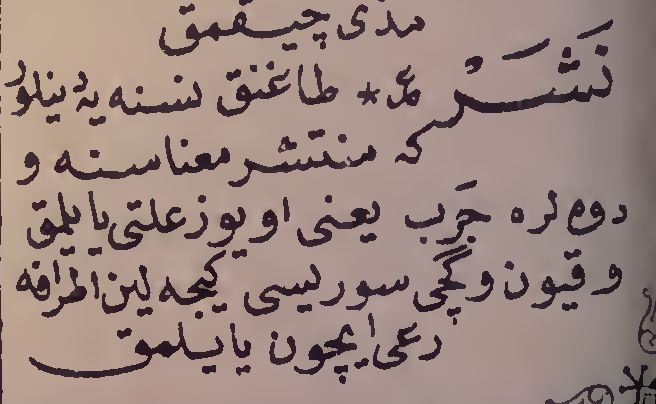 مذی چیقمق
نَشَرْ مگ * طاغنق نسنه یه دینلور
که منتشر معناسنه و
دوه لره جَرَب یعنی اویوز علتی یایلمق
و قیون و گچی سوریسی کیجه لین اطرافه
رعی ایچون یایلمق